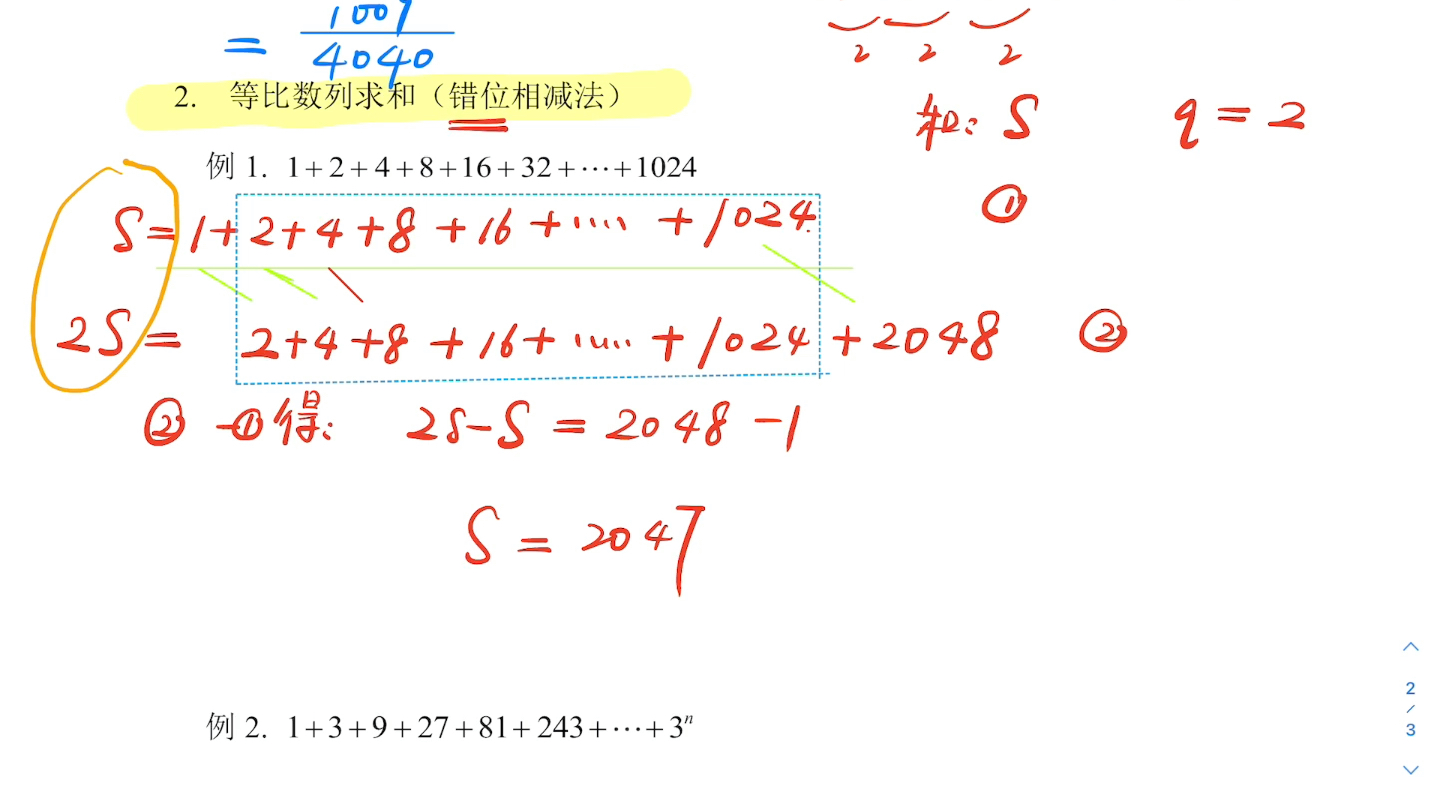 = 1009/4040
2 2 2
2. 等比数列求和（错位相减法）
和: S q = 2
例 1. 1+2+4+8+16+32+⋯+1024
S = 1+2+4+8+16+⋯+1024 ①
2S = 2+4+8+16+⋯+1024+2048 ②
② -①得: 2S-S = 2048-1
S = 2047
例 2. 1+3+9+27+81+243+⋯+3ⁿ
2
/
3